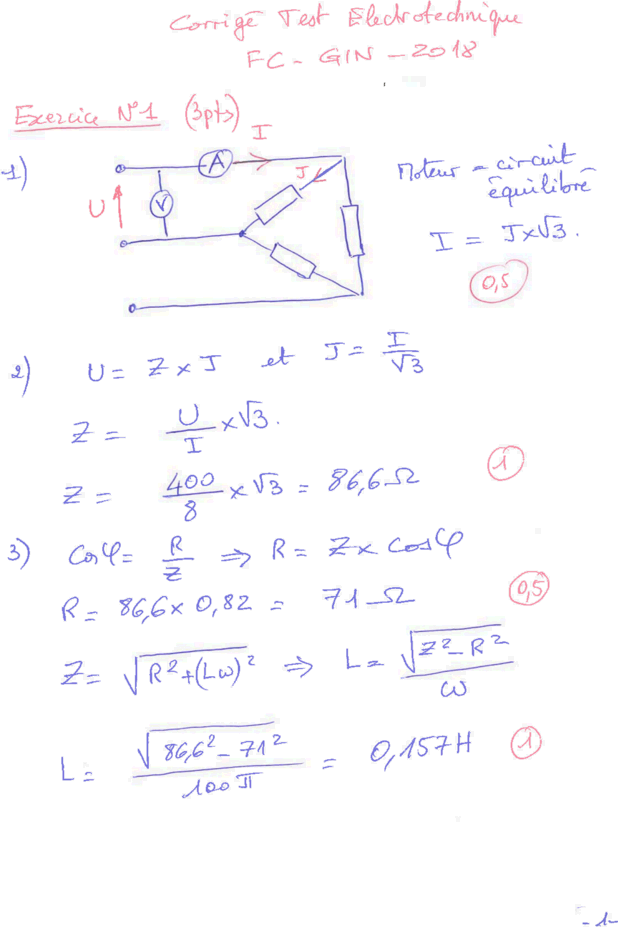 Corrigé Test Electrotechnique
FC - GIN - 2018
Exercice N°1 (3pts)
I
1)
A
J
Moteur = circuit
équilibré
U
V
I = J×√3.
0,5
2) U = Z × J et J = I/√3
Z = U/I ×√3.
Z = 400/8 × √3 = 86,6 Ω
1
3) Cosφ = R/Z ⇒ R = Z × Cosφ
R = 86,6 × 0,82 = 71 Ω
0,5
Z = √(R²+(Lω)²) ⇒ L = √(Z²-R²)/ω
L = √(86,6²-71²)/100π = 0,157H
1
-1-